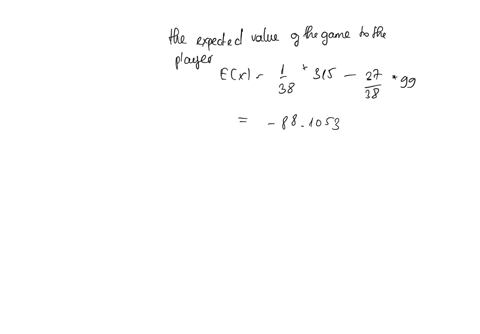 the expected value of the game to the
player
E(x) = 1/38 * 315 - 27/38 * 99
= -88.1053